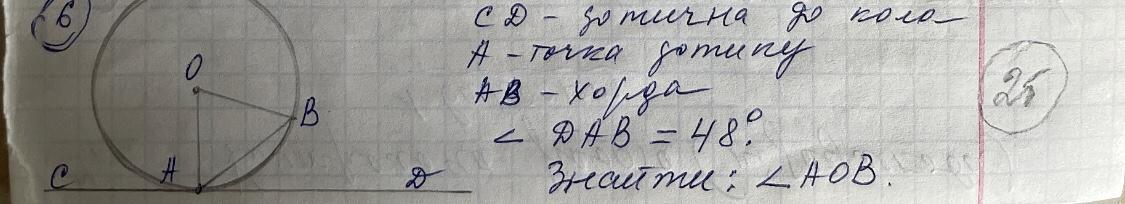 6
CD - дотична до кола
A - точка дотику
AB - хорда
∠ DAB = 48°.
Знайти: ∠AOB.
O
B
C
A
D